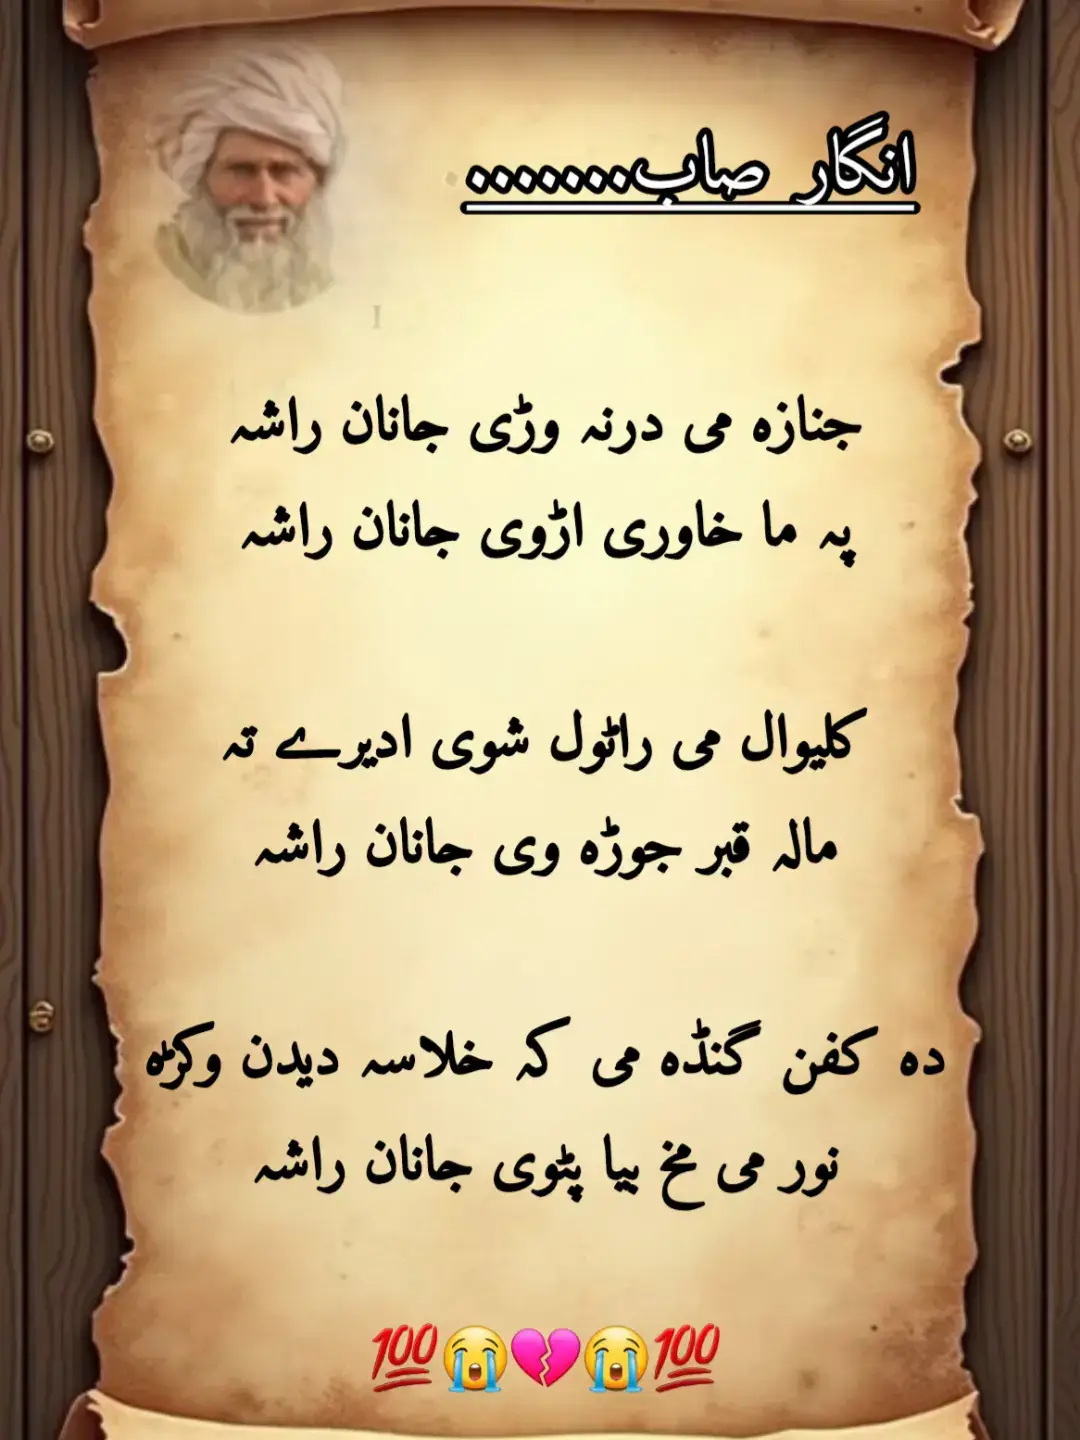 انگار صاب.......
جنازہ می درنہ وڑی جانان راشہ
پہ ما خاوری اڑوی جانان راشہ
کلیوال می راٹول شوی ادیرے تہ
مالہ قبر جوڑہ وی جانان راشہ
دہ کفن گنڈہ می کہ خلاسہ دیدن وکڑہ
نور می مخ بیا پٹوی جانان راشہ
💯😭💔😭💯